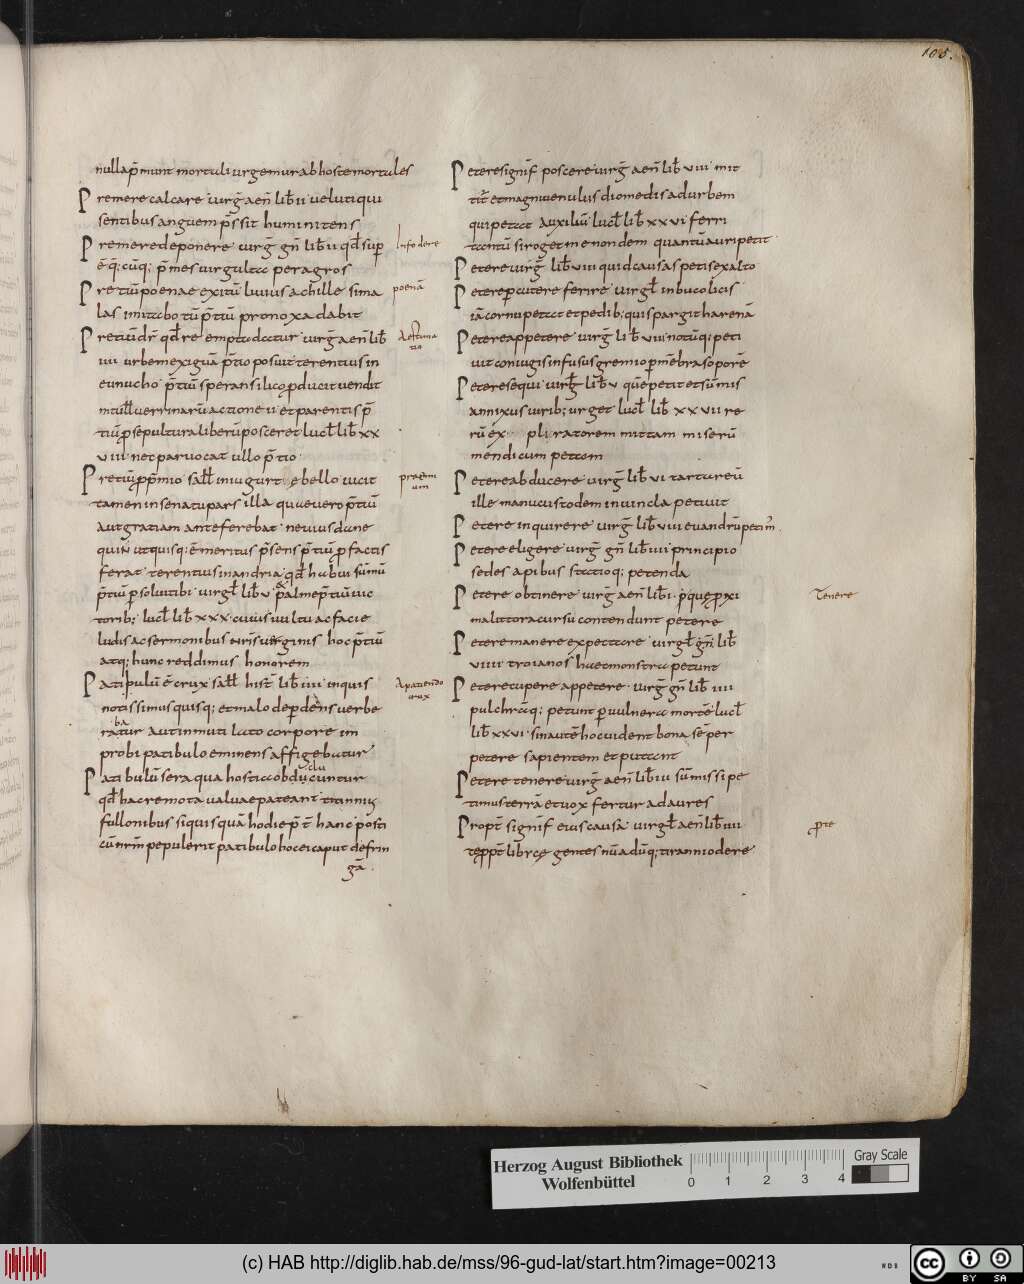 105.
nulla p̄munt mortali urgemur ab hoste mortales
Premere calcare uirḡ aen̄ lib̄ ii ueluti qui
sentibus anguem p̄ssit humi nitens
Premere deponere uirḡ gn̄ lib̄ ii qđ sup
p̄mes uirgulta per agros
Infodere
Pretiū poenae exitū liuius achille si ma
las imitabo tū p̄tiū pro noxa dabit
poenā
Pretiū dr̄ qđ re empto datur uirḡ aen̄ lib̄
iiii urbem exiguā p̄tio posuit terentius in
eunucho p̄tiū sperans ilico producit uendit
Aestima
tio
m tull uerrinarū actione ii et parentis p̄
tiū p sepultura liberū posceret lucł lib̄ xx
uiii nec paruo cat ullo p̄tio
Pretiū p p̄mio sall in iugurt e bello uicit
tamen in senatu pars illa quae uero p̄tiū
praemi
um
aut gratiam anteferebat neuius dane
quin ut quisq; ē meritus p̄sens p̄tiū p factis
ferat terentius in andria qđ habui sum̄ū
p̄tiū psolui tibi uirgł lib̄ v palmae p̄tiū uic
torib; lucł lib̄ xxx cuius uultu ac facie
ludis ac sermonibus nr̄is uirginis hoc p̄tiū
atq; hunc reddimus honorem
Patipulū ē crux sall hist̄ lib̄ iiii in quis
notissimus quisq; et malo dependens uerbe
ba
ratur aut inmutilato corpore im
probi patibulo eminens affigebatur
A patiendo
crux
Patibulū sera qua hostia obducuntur
clu
qđ hac remota ualuae pateant titannius
fullonibus si quisquā hodie p̄t̄ hanc posti
cū nr̄m pepulerit patibulo hoc ei caput defrin
gā.
Petere signif̄ poscere uirḡ aen̄ lib̄ viii mit
tit̄ et magni uenulus diomedis ad urbem
qui petat auxiliū lucł lib̄ xxvi ferri
tantū si roget me non dem quantū auri petit
Petere uirḡ lib̄ viii quid causas petis ex alto
Petere pcutere ferire uirgł in bucolicis
iā cornu petat et pedib; qui spargit harenā
Petere appetere uirḡ lib̄ viii notūq; peti
uit coniugis infusus gremio p mēbra soporē
Petere sēqui uirgł lib̄ v quē petit et sūmis
annixus uirib; urget lucł lib̄ xxvii re
rū ex pli ratorem mittam miserū
mendicum petam
Petere abducere uirḡ lib̄ vi tartareū
ille manu custodem in uincla petiuit
Petere inquirere uirḡ lib̄ viii euandrū petim̄.
Petere eligere uirḡ gn̄ lib̄ iiii principio
sedes apibus statioq; petenda
Petere obtinere uirḡ aen̄ lib̄ i p̄que pxi
ma littora cursu contendunt petere
Tenere
Petere manere expectare uirgł gn̄ lib̄
viiii troianos haec monstra petunt
Petere cupere appetere uirḡ gn̄ lib̄ iiii
pulchrāq; petunt p uulnera mortē lucł
lib̄ xxvi sin autē hoc uident bona sēper
petere sapientem et putant
Petere tenere uirḡ aen̄ lib̄ iu sūmissi pe
timus terrā et uox fertur ad aures
Propt̄ signif̄ eius causa uirgł aen̄ lib̄ iiii
te ppt̄ libyce gentes numadūq; tiranni odere
ppte
Herzog August Bibliothek
Wolfenbüttel
0 1 2 3 4
Gray Scale
(c) HAB http://diglib.hab.de/mss/96-gud-lat/start.htm?image=00213
WDB
cc BY SA